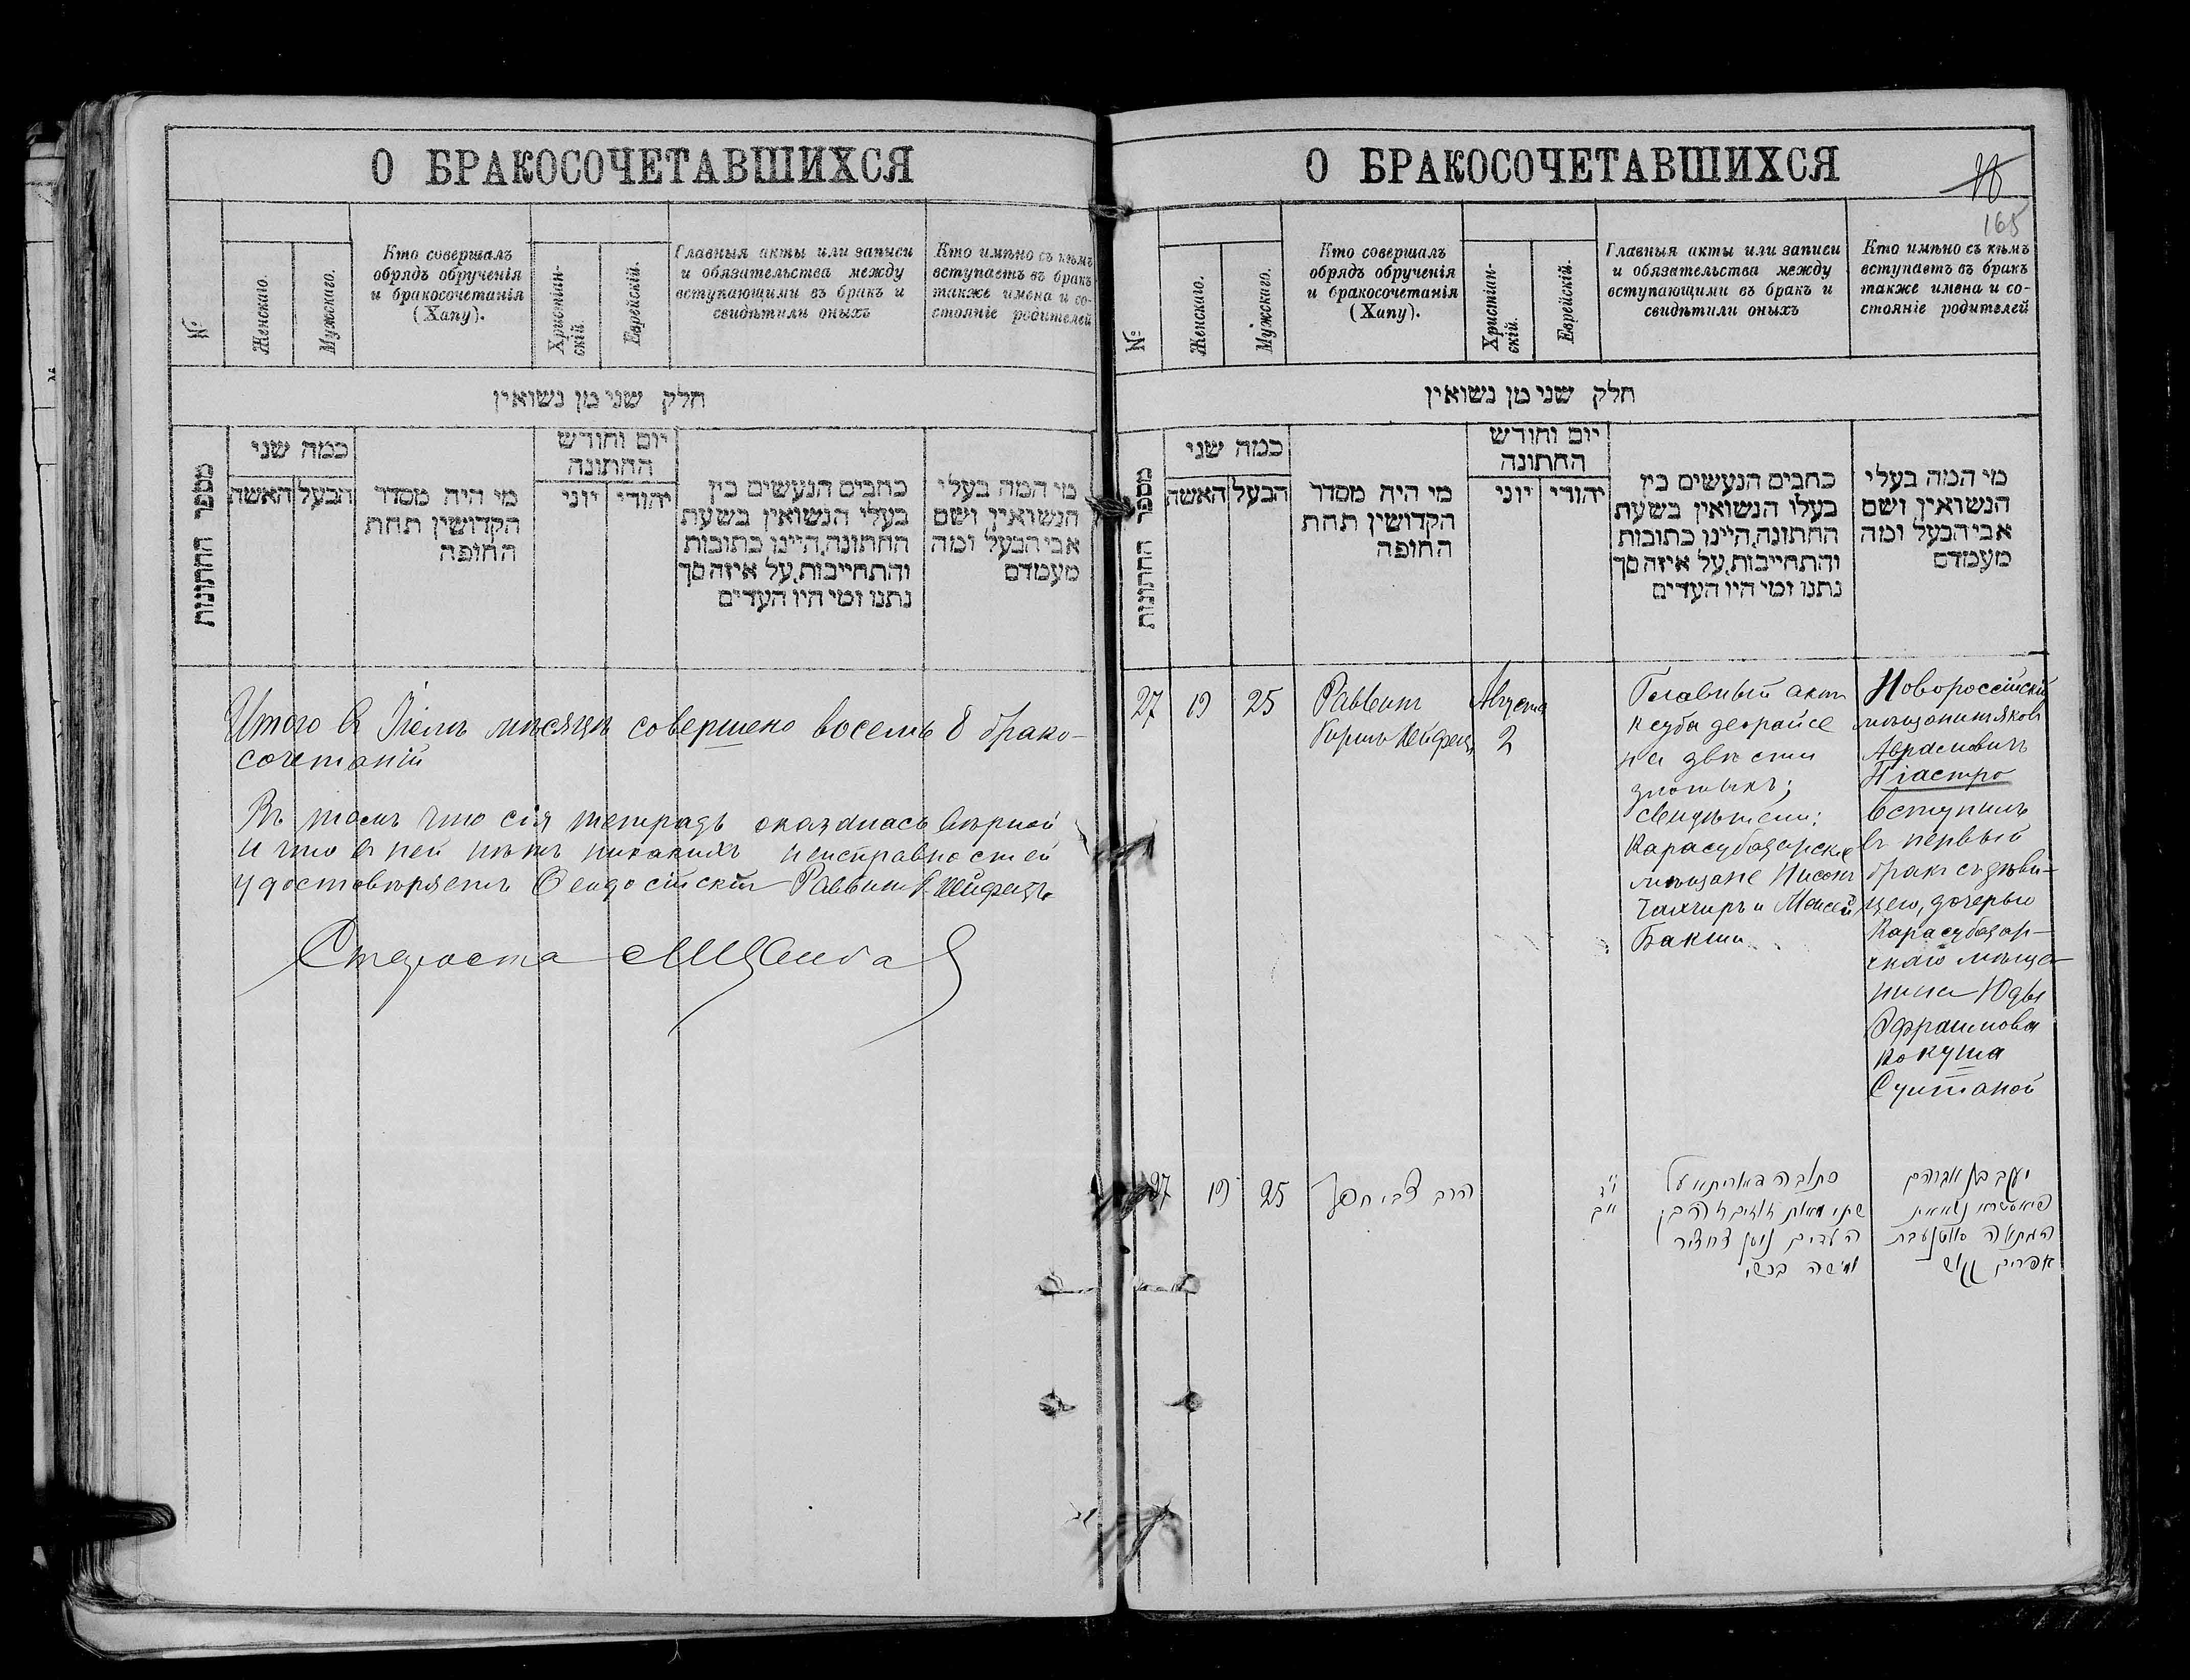 О БРАКОСОЧЕТАВШИХСЯ
№
Женскаго.
Мужскаго.
Кто совершалъ
обрядъ обрученія
и бракосочетанія
(Хупу).
Христіан-
скій.
Еврейскій.
Главныя акты или записи
и обязательства между
вступающими въ бракъ и
свидѣтили оныхъ
Кто имѣно съ кѣмъ
вступаетъ въ бракъ
также имена и со-
стояніе родителей
חלק שני מן נשואין
מספר החתונות
כמה שני
האשה
הבעל
מי היה מסדר
הקדושין תחת
החופה
יום וחודש
החתונה
יוני
יהודי
כתבים הנעשים בין
בעלי הנשואין בשעת
החתונה, היינו כתובות
והתחייבות, על איזה סך
נתנו ומי היו העדים
מי המה בעלי
הנשואין, ושם
אבי הבעל ומה
מעמדם
Итого въ Іюлѣ мѣсяцѣ совершено восемь 8 брако-
сочетаній
Въ томъ что сія тетрадь оказалась вѣрной
и что въ ней нѣтъ никакихъ неисправностей
удостовѣряетъ Ѳеодосійскій Раввинъ Г. Хейфецъ
Староста
О БРАКОСОЧЕТАВШИХСЯ
165
№
Женскаго.
Мужскаго.
Кто совершалъ
обрядъ обрученія
и бракосочетанія
(Хупу).
Христіан-
скій.
Еврейскій.
Главныя акты или записи
и обязательства между
вступающими въ бракъ и
свидѣтили оныхъ
Кто имѣно съ кѣмъ
вступаетъ въ бракъ
также имена и со-
стояніе родителей
חלק שני מן נשואין
מספר החתונות
כמה שני
האשה
הבעל
מי היה מסדר
הקדושין תחת
החופה
יום וחודש
החתונה
יוני
יהודי
כתבים הנעשים בין
בעלי הנשואין בשעת
החתונה, היינו כתובות
והתחייבות, על איזה סך
נתנו ומי היו העדים
מי המה בעלי
הנשואין, ושם
אבי הבעל ומה
מעמדם
27
19
25
Раввинъ
Гиршъ Хейфецъ
Августа
2
Главный актъ
ксуба деорайсе
на двѣсти
злотыхъ;
свидѣтели:
Карасубазарскіе
мѣщане Нисонъ
Чахчиръ и Моисей
Бакши
Новороссійскій
мѣщанинъ Яковъ
Абрамовичъ
Піастро
вступилъ
въ первый
бракъ съ дѣви-
цею, дочерью
Карасубазар-
скаго мѣща-
нина Юды
Эфраимова
Кокуша
Султаной
27
19
25
הרב צבי חפץ
כתובה דאוריתא על
שתי מאות זהובים
העדים ניסן
ומשה בכשי
יעקב בן אברהם
פיאסטרא נשא את
הבתולה סולטנע בת
אפרים